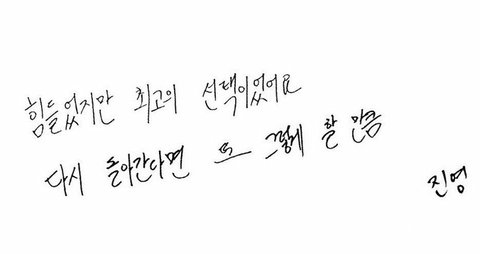 힘들었지만 최고의 선택이었어요
다시 돌아간다면 또 그렇게 할 만큼
진영